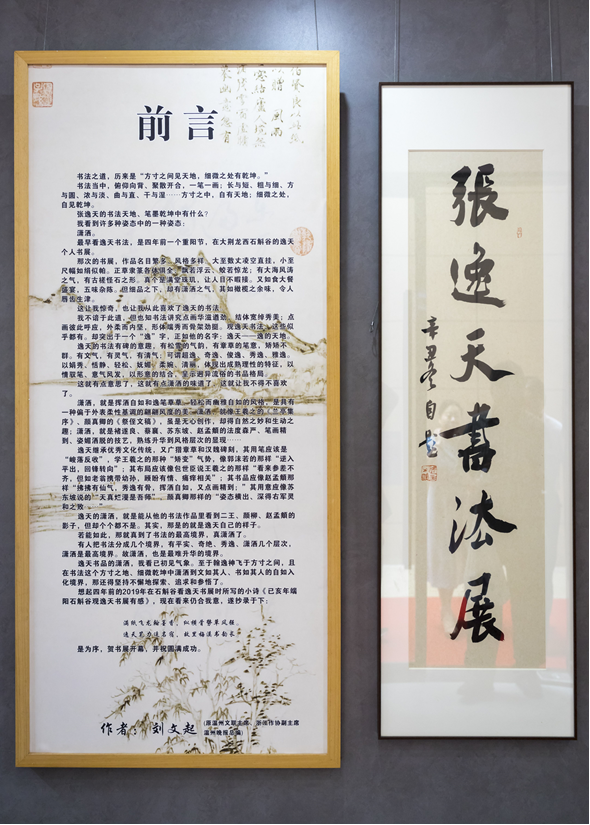 前言
书法之道，历来是“方寸之间见天地，细微之处有乾坤。”
书法当中，俯仰向背、聚散开合，一笔一画；长与短、粗与细、方
与圆、浓与淡、曲与直、干与湿……方寸之中，自有天地；细微之处，
自见乾坤。
张逸天的书法天地、笔墨乾坤中有什么？
我看到许多种姿态中的一种姿态：
潇洒。
最早看逸天书法，是四年前一个重阳节，在大荆龙西石斛谷的逸天
个人书展。
那次的书展，作品名目繁多，风格多样，大至数丈凌空直挂，小至
尺幅如绢似帕。正草隶篆各体俱全，飘若浮云，蛟若惊龙；有大海风涛
之气，有古槎怪石之形。真个是满堂珠玑，让人目不暇接。又如食大餐
盛宴，五味杂陈。但细品之下，却有潇洒之气，其如橄榄之余味，令人
唇齿生津。
这让我惊奇，也让我从此喜欢了逸天的书法。
我不谙于此道，但也知书法讲究点画华滋遒劲，结体宽绰秀美；点
画彼此呼应，外柔而内坚，形体端秀而骨架劲挺。观逸天书法，这些似
乎都有，却突出于一个“逸”字，正如他的名字：逸天——逸的天地。
逸天的书法有碑的意趣，有松雪的气韵、有章草的笔意，矫矫不
群。有文气，有灵气，有清气；可谓超逸、奇逸、俊逸、秀逸、雅逸。
以娟秀、恬静、轻松、妩媚、柔婉、清丽，体现出成熟理性的特征，以
情驭笔，意气风发，以形意的结合，呈示迥异流俗的书品格局。
这就有点意思了，这就有点潇洒的味道了，这就让我不得不喜欢
了。
潇洒，就是挥洒自如和逸笔草草，轻松而幽雅自如的风格，是具有
一种偏于外表柔性基调的翩翩风度的美。潇洒，就像王羲之的《兰亭集
序》、颜真卿的《祭侄文稿》，虽是无心创作，却得自然之妙和生动之
趣；潇洒，就是褚遂良、蔡襄、苏东坡、赵孟頫的法度森严、笔画精
到、姿媚洒脱的技艺，熟练升华到风格层次的显现……
逸天继承优秀文化传统，又广猎章草和汉魏碑刻，其用笔应该是
“峻落反收”，学王羲之的那种“矫变”气势，像郭沫若的那样“逆入
平出，回锋转向”；其布局应该像包世臣说王羲之的那样“看来参差不
齐，但如老翁携带幼孙，顾盼有情，痛痒相关”；其书品应像赵孟頫那
样“拂拂有仙气，秀逸有骨，挥洒自如，又点画精到；”其用意应像苏
东坡说的“天真烂漫是吾师”，颜真卿那样的“姿态横出、深得右军灵
和之致”。
逸天的潇洒，就是能从他的书法作品里看到二王、颜柳、赵孟頫的
影子，但却个个都不是。其实，那是的就是逸天自己的样子。
若能如此，那就真到了书法的最高境界，真潇洒了。
有人把书法分成几个境界，有平实、奇绝、秀逸、潇洒几个层次，
潇洒是最高境界。故潇洒，也是最难升华的境界。
逸天书品的潇洒，我看已初见气象。至于翰逸神飞于方寸之间，且
在书法这个方寸之地、细微乾坤中潇洒到文如其人、书如其人的自如入
化境界，那还得坚持不懈地探索、追求和参悟了。
想起四年前的2019年在石斛谷看逸天书展时所写的小诗《己亥年端
阳石斛谷观逸天书展有感》，现在看来仍合我意，遂抄录于下：
满纸飞龙翰墨香，纵横常势草风狂。
逸天笔力追名宿，故里梅溪书韵长。
是为序，贺书展开幕，并祝圆满成功。
作者：刘文起
(原温州文联主席、浙江作协副主席
温州晚报总编)
張逸天書法展
辛丑冬自题